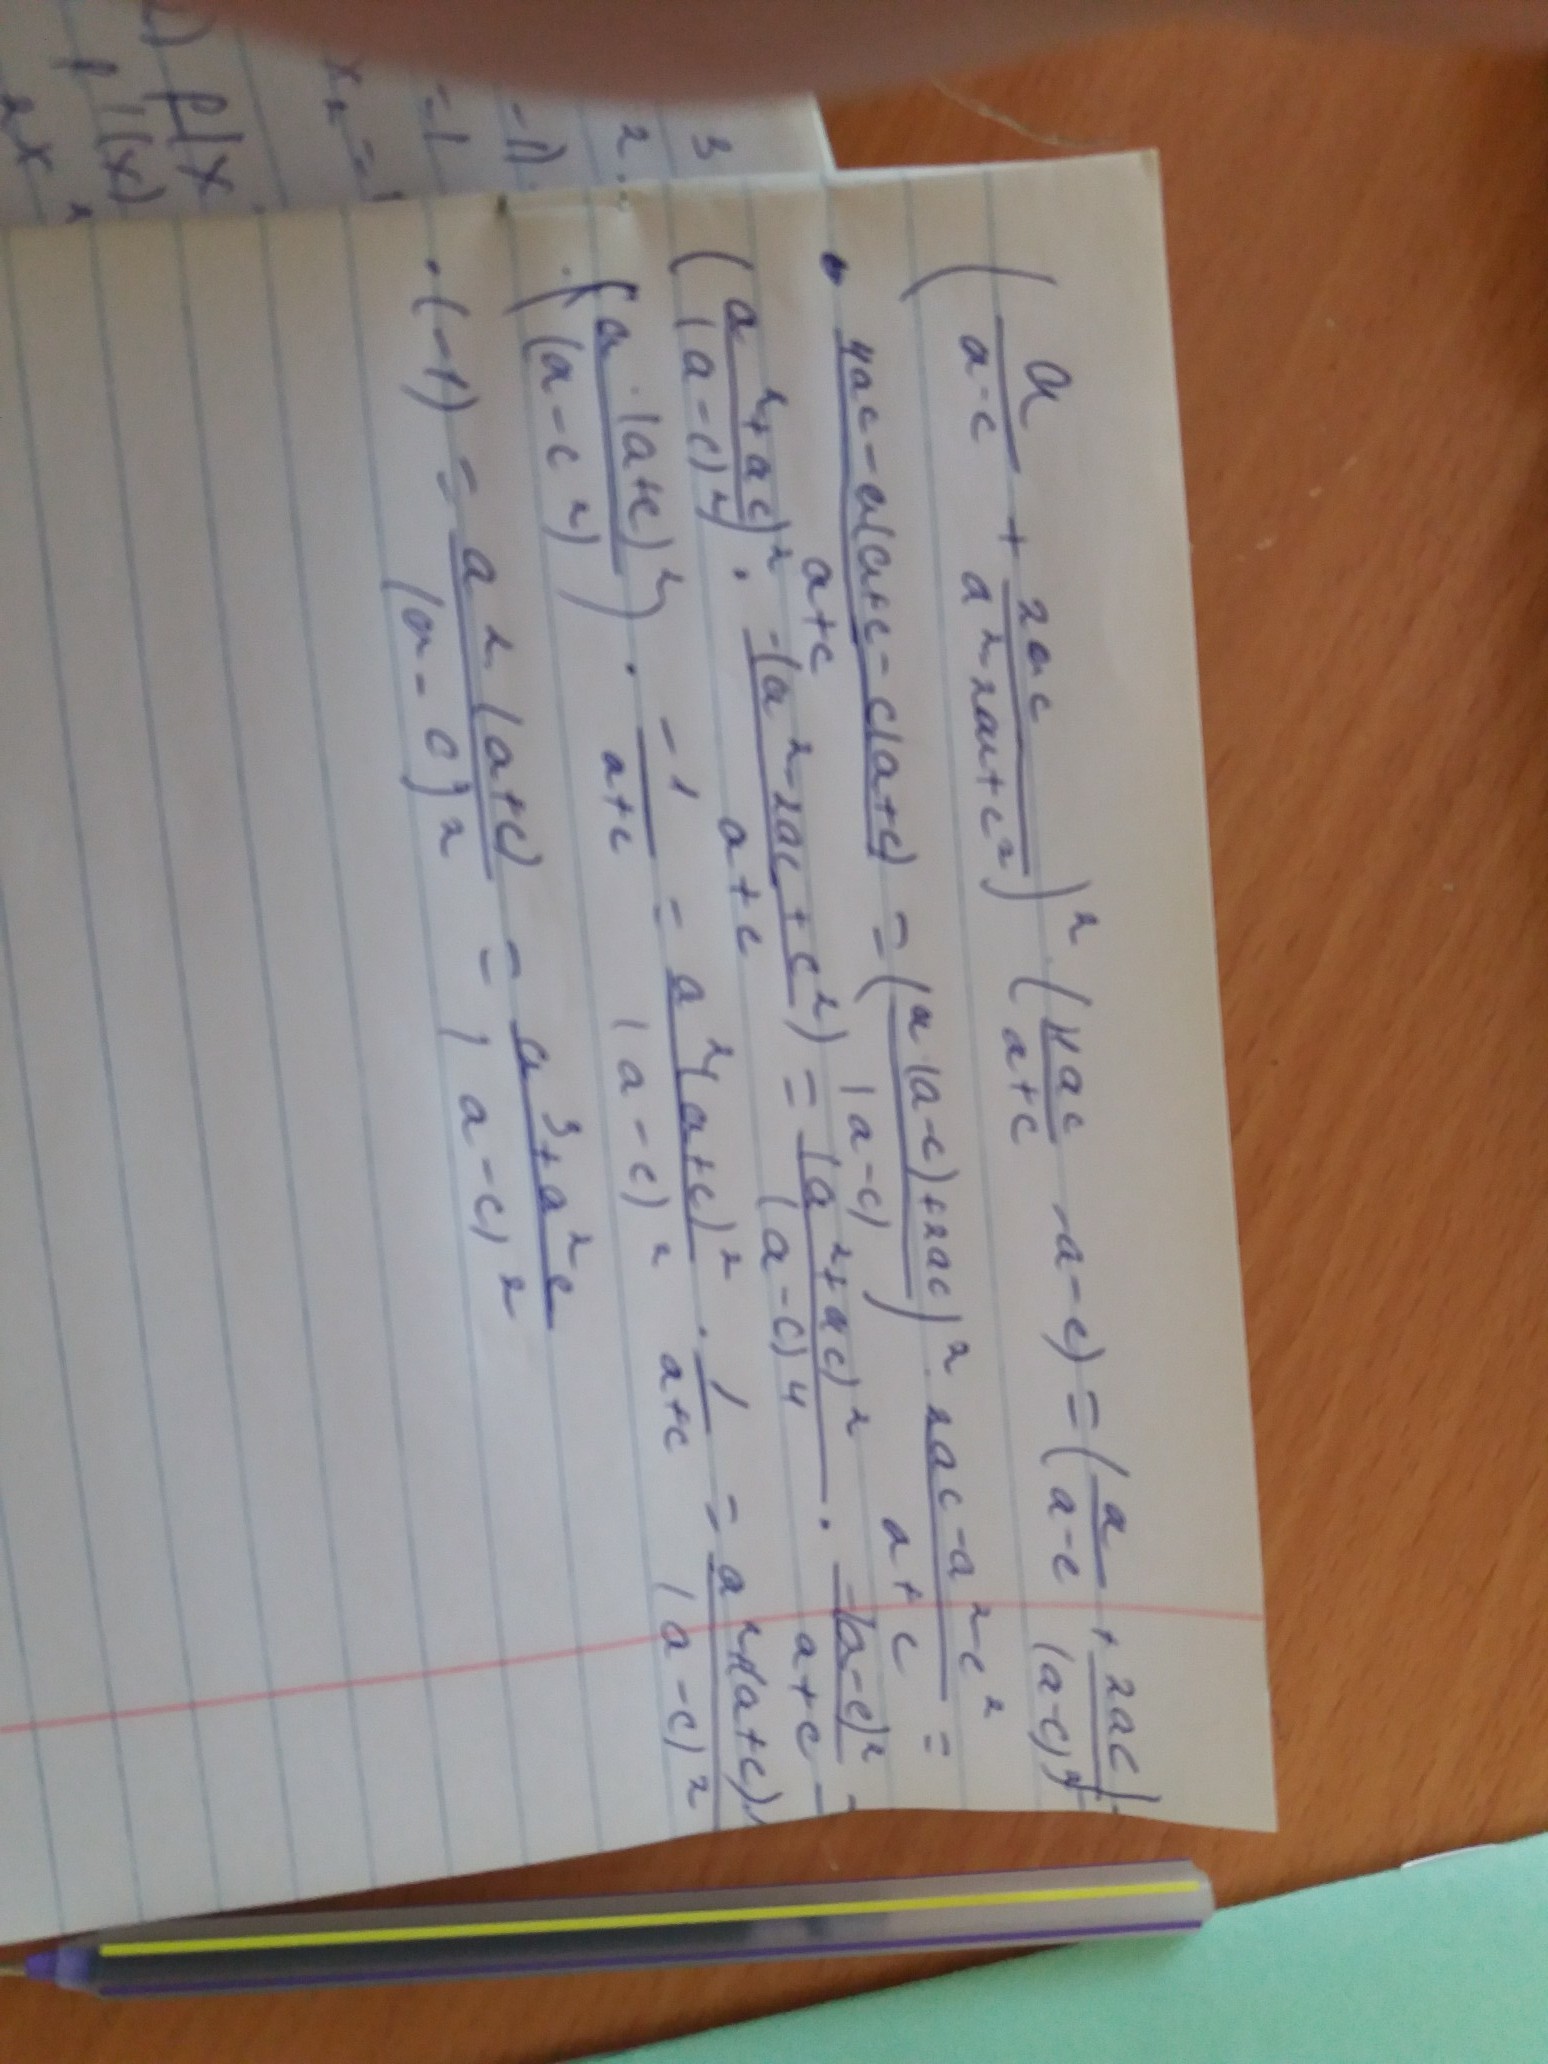 (a/(a-c) + 2ac/(a² 2ac+c²))² · (4ac/(a+c) -a-c) = (a/(a-c) + 2ac/(a-c)²)
· (4ac-a(a+c-c(a+c))/(a+c) = (a(a-c)+2ac)²/(a-c) · (2ac-a²-c²)/(a+c) =
(a²+ac)²/(a-c)⁴ · -(a²-2ac+c²)/(a+c) = (a²+ac)²/(a-c)⁴ · -(a-c)²/(a+c) =
·(a·(a+c)²/(a-c²)) · -1/(a+c) = a²(a+c)²/(a-c)² · 1/(a+c) = a²(a+c)/(a-c)²
·(-1) = a²(a+c)/(a-c)² = a³+a²c/(a-c)²
3
2.
-1)
=-1
x₂=
f(x
f'(x)
2x